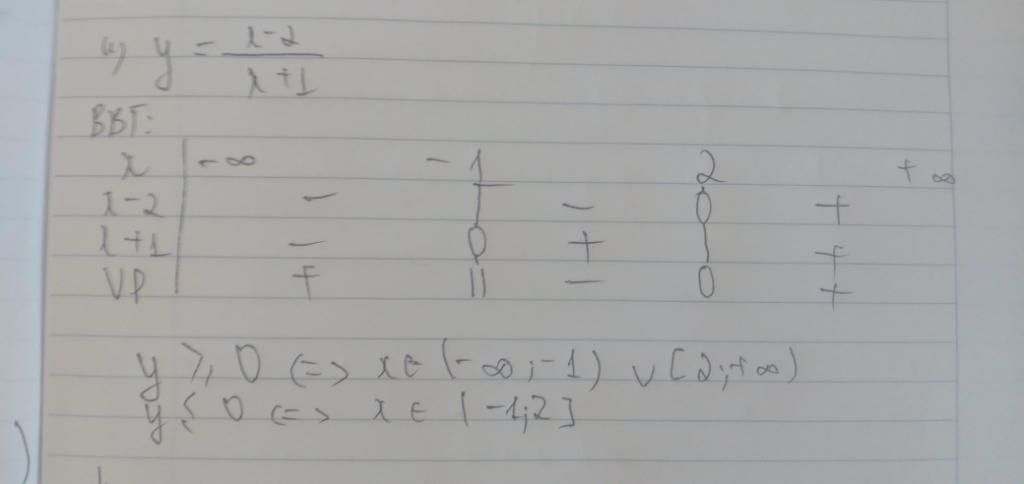 a) y = x-2 / x+1
BBT:
x | -∞ -1 2 +∞
x-2 | - | - 0 +
x+1 | - 0 + | +
VP | + || - 0 +
y ⩾ 0 <=> x ∈ (-∞; -1) ∪ [2; +∞)
y ⩽ 0 <=> x ∈ (-1; 2]